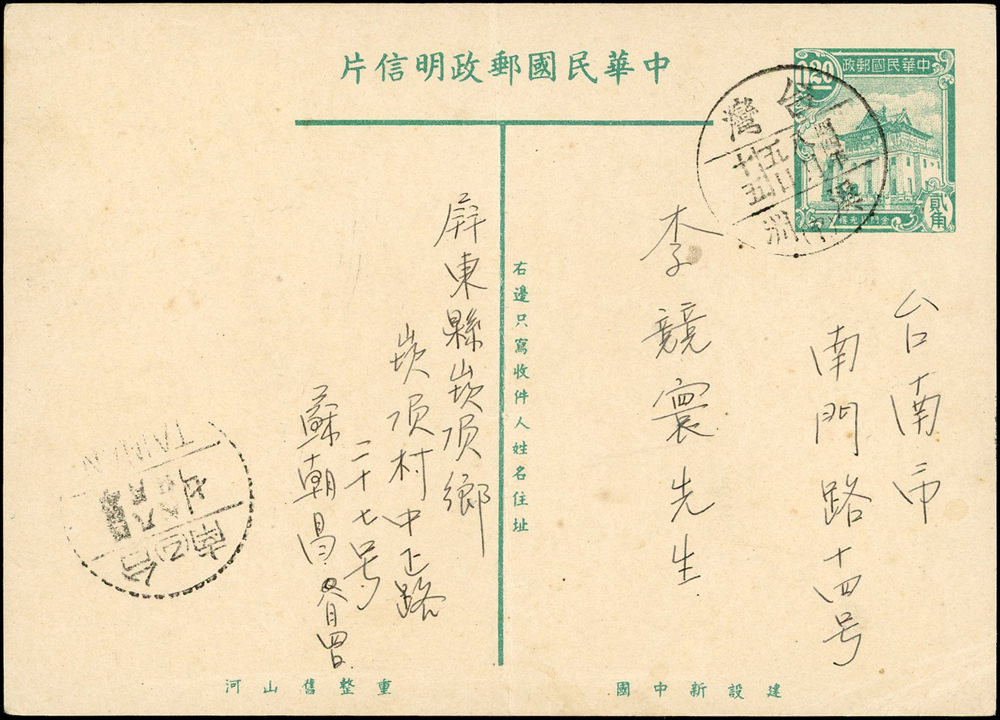 中華民國郵政明信片
中華民國郵政
20
貳角
金門莒光樓
台南市
南門路十四号
李競寰先生
右邊只寫收件人姓名住址
屏東縣崁頂鄉
崁頂村中正路
二十七号
蘇朝昌 八月四日
台灣
台南
TAINAN
建設新中國
重整舊山河